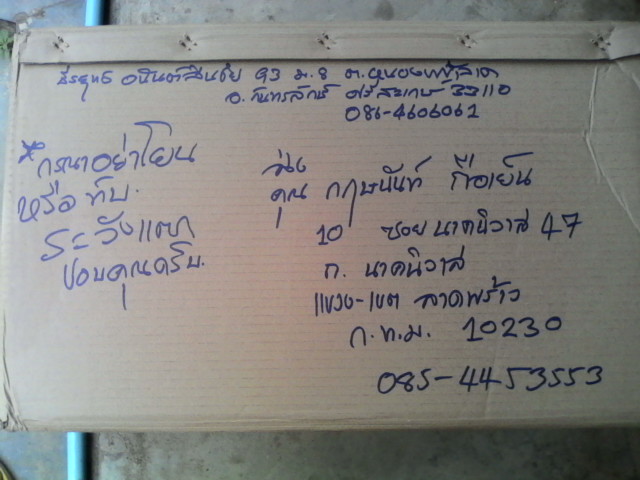 93 ม.8 ต.
อ.กันทรลักษ์ ศรีสะเกษ 33110
086-4606061
*กรุณาอย่าโยน
หรือ ทับ.
ระวังแตก
ขอบคุณครับ.
ส่ง
คุณ กฤษนันท์
10 ซอย นาคนิวาส 47
ถ. นาคนิวาส
แขวง-เขต ลาดพร้าว
ก.ท.ม. 10230
085-4453553